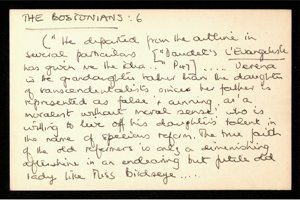 THE BOSTONIANS : 6
("He departed from the outline in
several particulars ["Daudet's L'Evangéliste
has given me the idea..." P47] .... Verena
is the granddaughter rather than the daughter
of transcendentalists since her father is
represented as false & cunning, as a
miscreant without moral sense, who is
willing to live off his daughter's talent in
the name of specious reform. The true faith
of the old reformers is only a diminishing
aftershine in an endearing but futile old
lady like Miss Birdseye....